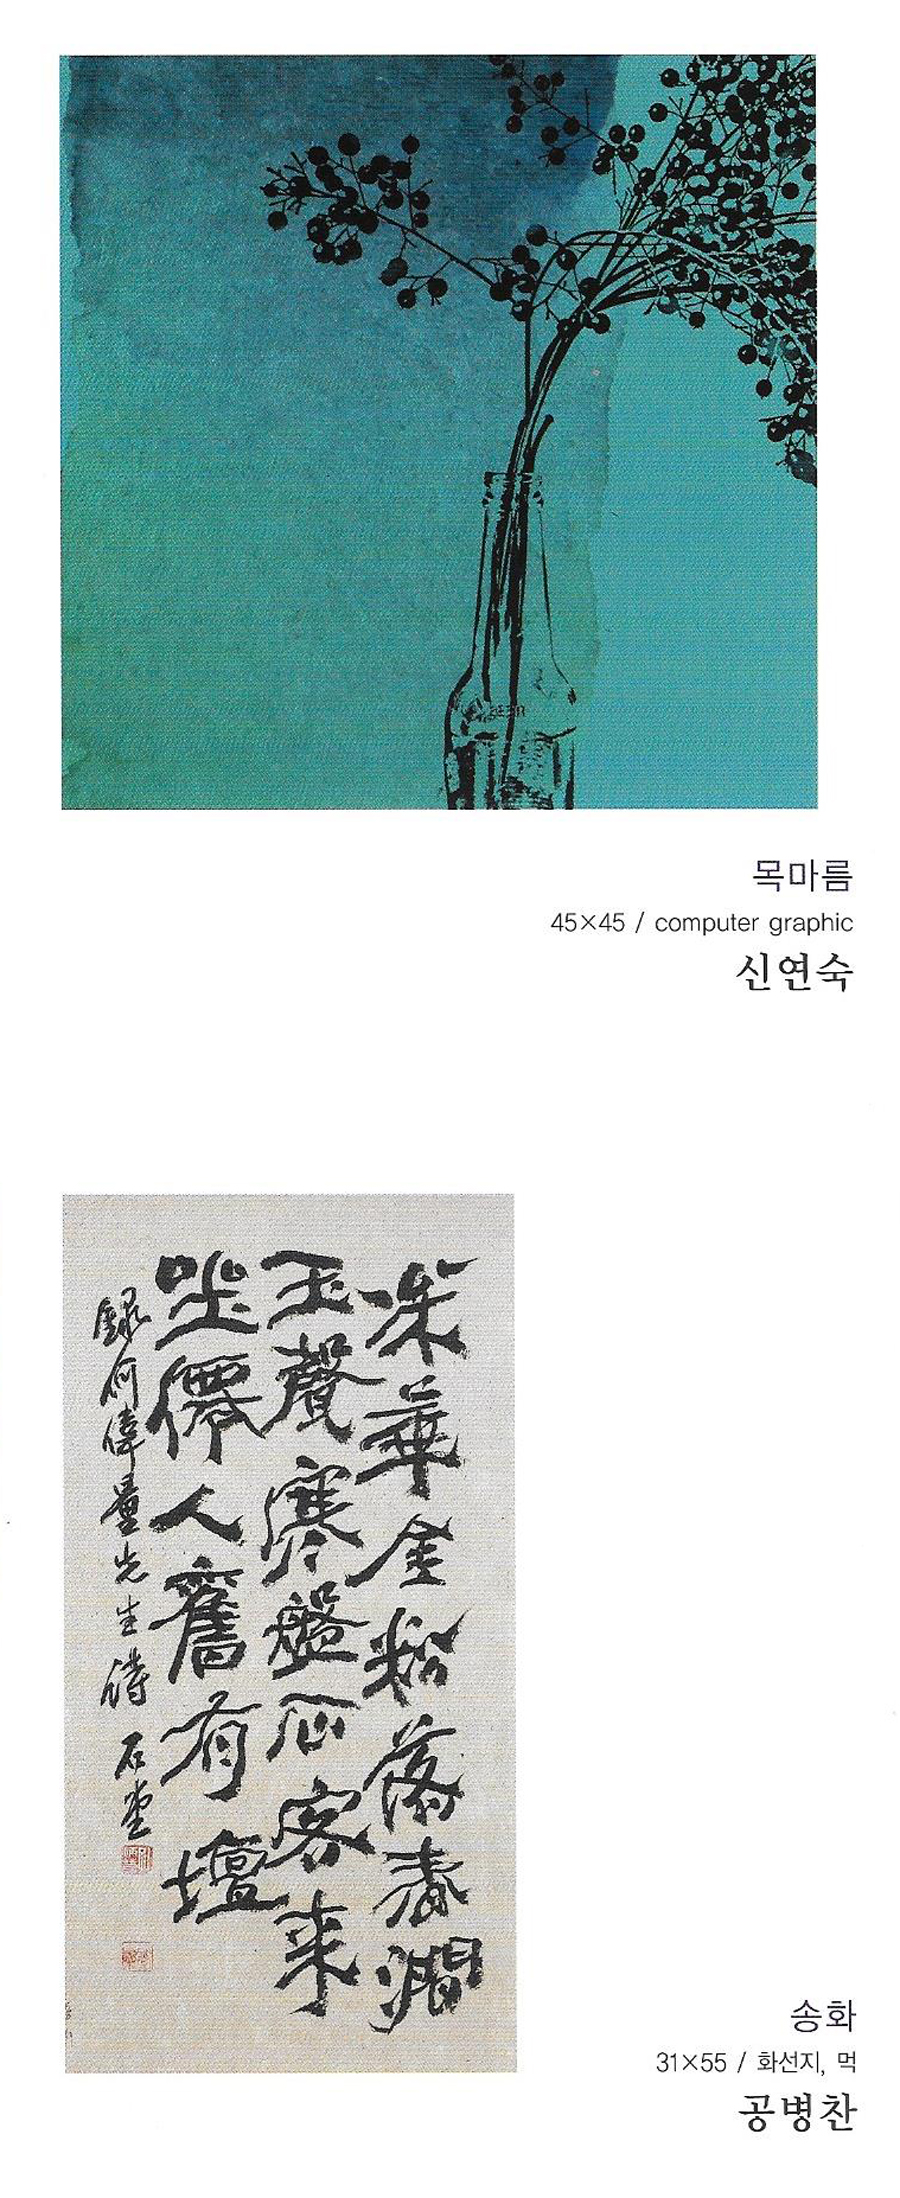 목마름
45×45 / computer graphic
신연숙
松華金粉落春澗
玉聲寒盤石客來
坐僊人舊有壇
錄何偉量先生詩 石堂
송화
31×55 / 화선지, 먹
공병찬